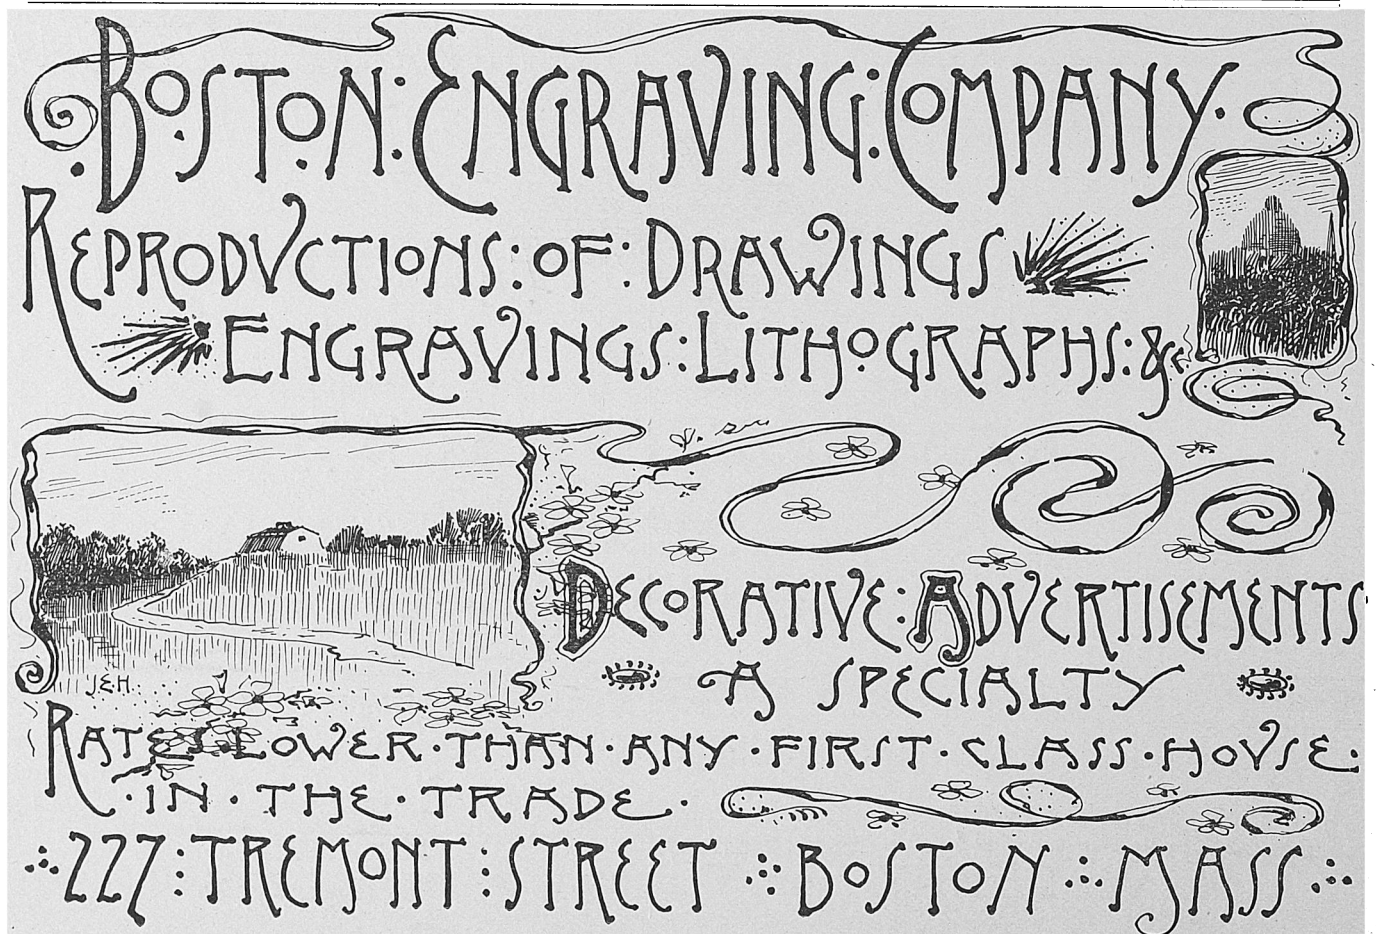 BOSTON : ENGRAVING : COMPANY.
REPRODVCTIONS : OF : DRAWINGS
ENGRAVINGS : LITHOGRAPHS : &c
DECORATIVE : ADVERTISEMENTS
A SPECIALTY
J.E.H.
RATES LOWER · THAN · ANY · FIRST · CLASS · HOVSE ·
· IN · THE · TRADE ·
227 : TREMONT : STREET BOSTON MASS